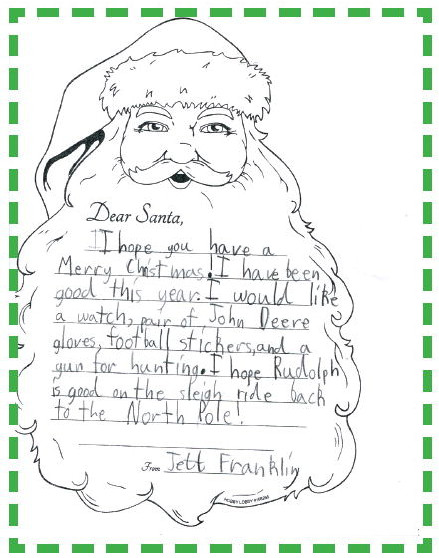 Dear Santa,
I hope you have a
Merry Christmas! I have been
good this year. I would like
a watch, pair of John Deere
gloves, football stickers, and a
gun for hunting. I hope Rudolph
is good on the sleigh ride back
to the North Pole!
From Jett Franklin
HOBBY LOBBY